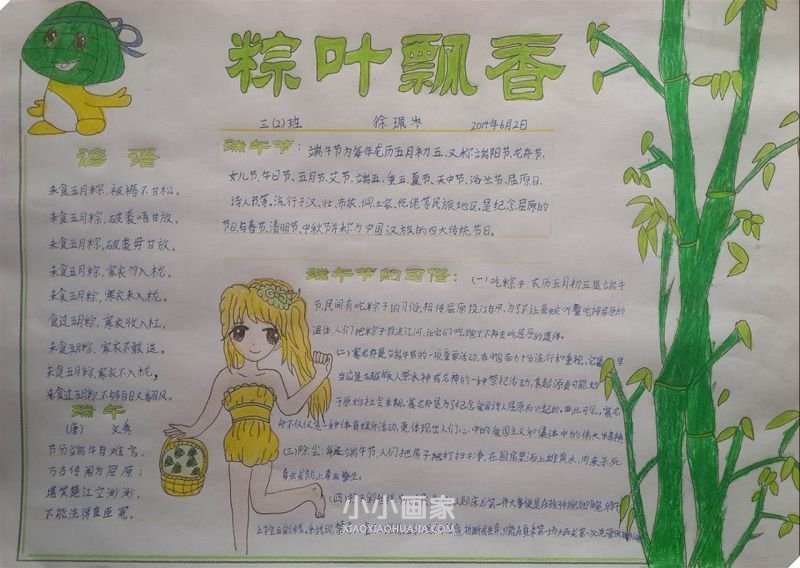 粽叶飘香
三(2)班 徐珮岑 2014年6月2日
谚语
未食五月粽,被褥不甘松。
未食五月粽,破裘唔甘放。
未食五月粽,破裘毋甘放。
未食五月粽,寒衣勿入栊。
未食五月粽,寒衣未入栊。
食过五月粽,寒衣收入杠,
未食五月粽,寒衣不敢送。
未食五月粽,寒衣不入栊,
未食过五月粽,不够百日又翻风。
端午
(唐) 文秀
节分端午自谁言,
万古传闻为屈原;
堪笑楚江空渺渺,
不能洗得直臣冤。
端午节:端午节为每年农历五月初五,又称端阳节、龙舟节、
女儿节、午日节、五月节、艾节、端五、重五、夏节、天中节、浴兰节、屈原日、
诗人节等。流行于汉、壮、布依、侗、土家、仡佬等民族地区。是纪念屈原的
节日与春节、清明节、中秋节并称为中国汉族的四大传统节日。
端午节的习俗:(一)吃粽子:农历五月初五是端午
节,民间有吃粽子的习俗,相传屈原投江自尽,为了不让鱼虾吃屈原的
遗体,人们把粽子投进江河,让它们吃饱了不再去吃屈原的遗体。
(二)赛龙舟是端午节的一项重要活动,在中国南方十分流行,它最早
当应是古越族人祭水神或龙神的一种祭祀活动,其起源有可能始
于原始社会末期。赛龙舟是为了纪念爱国诗人屈原而兴起的。由此可见,赛龙
舟不仅仅是一种体育娱乐活动,更体现出人们心中的爱国主义和集体中的伟大精神
(三)除尘:每逢端午节,人们把房子地打扫干净,在厨房里洒上雄黄水,用来杀死
毒虫或防止毒虫孳生。
(四)
小小画家
XIAOXIAOHUAJIA.COM